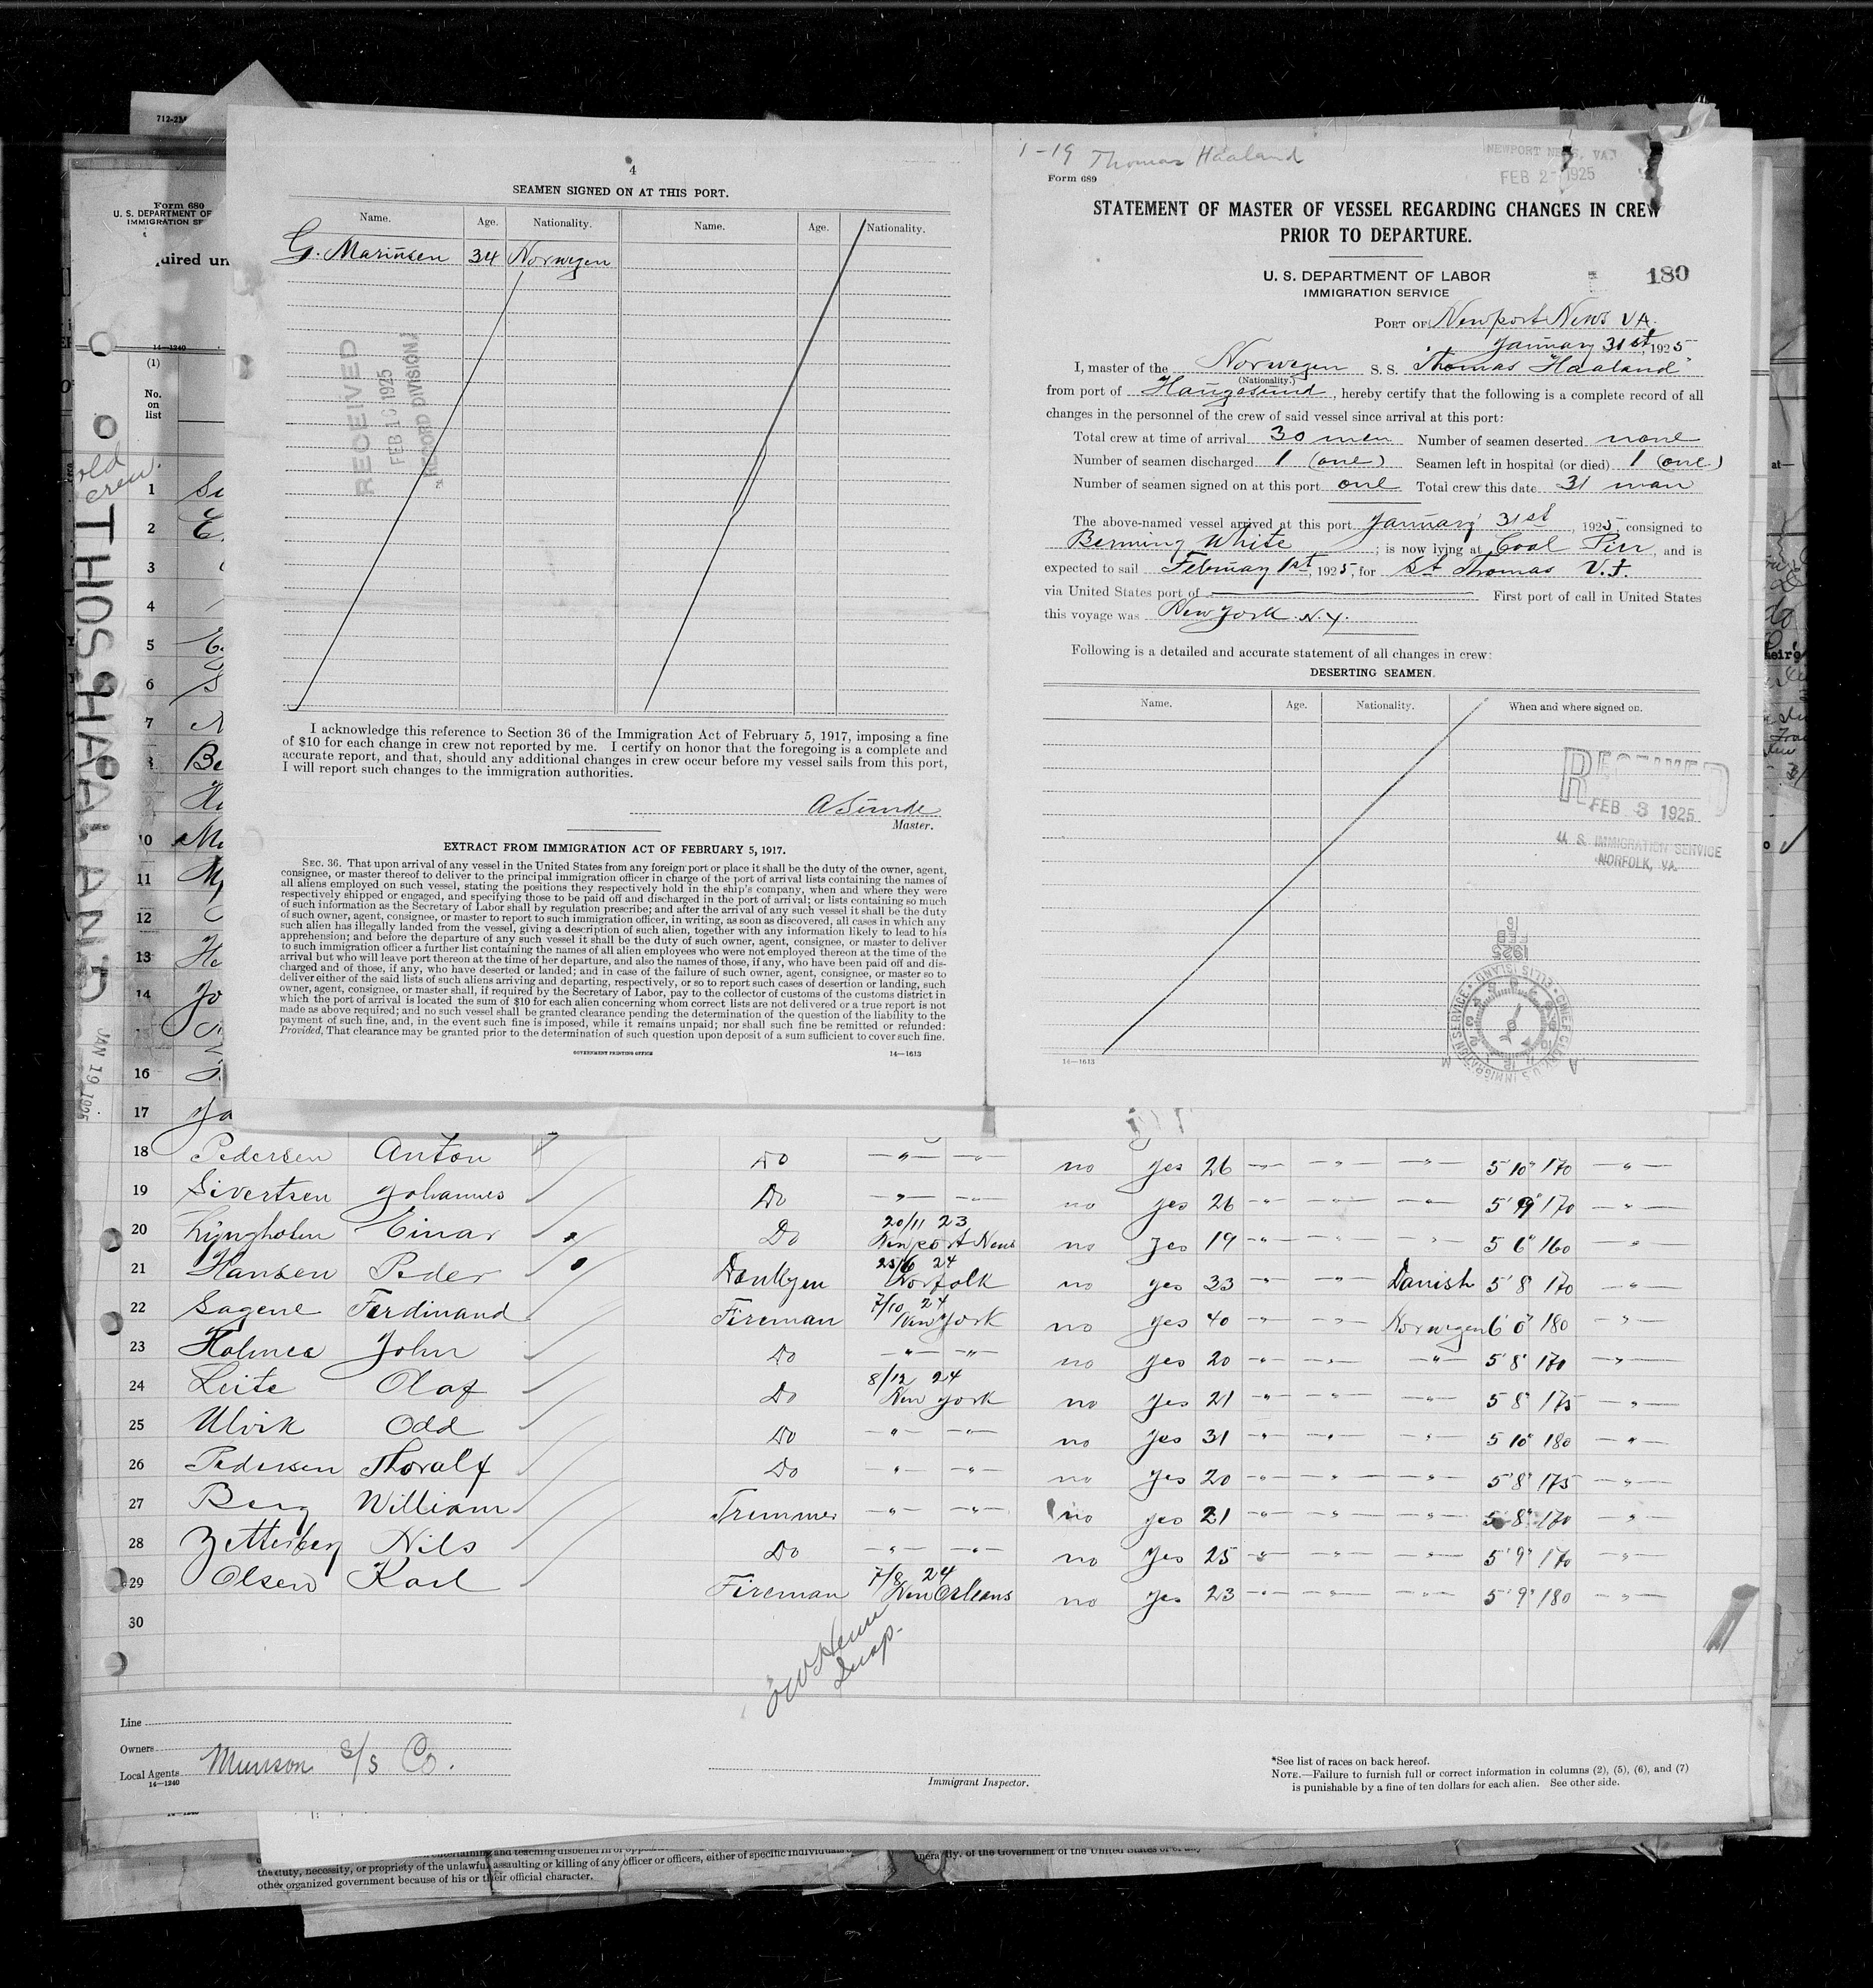 712-
Form 680
U. S. DEPARTMENT OF
IMMIGRATION SE
uired un
14—1240
(1)
No.
on
list
old
crew.
THOS. HAALAND
JAN 19 1925
4
SEAMEN SIGNED ON AT THIS PORT.
Name. Age. Nationality. Name. Age. Nationality.
G. Marinsen 34 Norwegen
RECEIVED
FEB 16 1925
RECORD DIVISION
I acknowledge this reference to Section 36 of the Immigration Act of February 5, 1917, imposing a fine
of $10 for each change in crew not reported by me. I certify on honor that the foregoing is a complete and
accurate report, and that, should any additional changes in crew occur before my vessel sails from this port,
I will report such changes to the immigration authorities.
A Sunde
Master.
EXTRACT FROM IMMIGRATION ACT OF FEBRUARY 5, 1917.
SEC. 36. That upon arrival of any vessel in the United States from any foreign port or place it shall be the duty of the owner, agent,
consignee, or master thereof to deliver to the principal immigration officer in charge of the port of arrival lists containing the names of
all aliens employed on such vessel, stating the positions they respectively hold in the ship's company, when and where they were
respectively shipped or engaged, and specifying those to be paid off and discharged in the port of arrival; or lists containing so much
of such information as the Secretary of Labor shall by regulation prescribe; and after the arrival of any such vessel it shall be the duty
of such owner, agent, consignee, or master to report to such immigration officer, in writing, as soon as discovered, all cases in which any
such alien has illegally landed from the vessel, giving a description of such alien, together with any information likely to lead to his
apprehension; and before the departure of any such vessel it shall be the duty of such owner, agent, consignee, or master to deliver
to such immigration officer a further list containing the names of all alien employees who were not employed thereon at the time of the
arrival but who will leave port thereon at the time of her departure, and also the names of those, if any, who have been paid off and dis-
charged and of those, if any, who have deserted or landed; and in case of the failure of such owner, agent, consignee, or master so to
deliver either of the said lists of such aliens arriving and departing, respectively, or so to report such cases of desertion or landing, such
owner, agent, consignee, or master shall, if required by the Secretary of Labor, pay to the collector of customs of the customs district in
which the port of arrival is located the sum of $10 for each alien concerning whom correct lists are not delivered or a true report is not
made as above required; and no such vessel shall be granted clearance pending the determination of the question of the liability to the
payment of such fine, and, in the event such fine is imposed, while it remains unpaid; nor shall such fine be remitted or refunded:
Provided, That clearance may be granted prior to the determination of such question upon deposit of a sum sufficient to cover such fine.
GOVERNMENT PRINTING OFFICE 14—1613
1-19 Thomas Haaland
Form 689
NEWPORT NEWS, VA.
FEB 2- 1925
STATEMENT OF MASTER OF VESSEL REGARDING CHANGES IN CREW
PRIOR TO DEPARTURE.
U. S. DEPARTMENT OF LABOR
IMMIGRATION SERVICE
180
PORT OF Newport News VA.
January 31st, 1925
I, master of the Norwegen S. S. "Thomas Haaland"
(Nationality.)
from port of Haugesund, hereby certify that the following is a complete record of all
changes in the personnel of the crew of said vessel since arrival at this port:
Total crew at time of arrival 30 men Number of seamen deserted none
Number of seamen discharged 1 (one) Seamen left in hospital (or died) 1 (one)
Number of seamen signed on at this port one Total crew this date 31 man
The above-named vessel arrived at this port January 31st, 1925, consigned to
Berming White; is now lying at Coal Pier, and is
expected to sail February 1st, 1925, for St Thomas V.I.
via United States port of First port of call in United States
this voyage was New York N.Y.
Following is a detailed and accurate statement of all changes in crew:
DESERTING SEAMEN.
Name. Age. Nationality. When and where signed on.
RECEIVED
FEB 3 1925
U. S. IMMIGRATION SERVICE
NORFOLK, VA.
1925
FEB
16
CHIEF CLERK, U.S. IMMIGRATION SERVICE • ELLIS ISLAND •
14—1613
1
2
3
4
5
6
7
8
9
10
11
12
13
14
16
17
18 Pedersen Anton Do —"— —"— no yes 26 —"— —"— —"— 5'10" 170 —"—
19 Sivertsen Johannes Do —"— —"— no yes 26 —"— —"— —"— 5'9" 170 —"—
20 Lyngholm Einar Do 20/11 23 Newport News no yes 19 —"— —"— —"— 5 6" 160 —"—
21 Hansen Peder Donkyen 25/6 24 Norfolk no yes 33 —"— —"— Danish 5'8 170 —"—
22 Sagene Ferdinand Fireman 7/10 24 New York no yes 40 —"— —"— Norwegen 6'0" 180 —"—
23 Holmes John Do —"— —"— no yes 20 —"— —"— —"— 5'8" 170 —"—
24 Leite Olaf Do 8/12 24 New York no yes 21 —"— —"— —"— 5 8" 175 —"—
25 Ulvik Odd Do —"— —"— no yes 31 —"— —"— —"— 5 10" 180 —"—
26 Pedersen Thoralf Do —"— —"— no yes 20 —"— —"— —"— 5'8" 175 —"—
27 Berg William Tremmer —"— —"— no yes 21 —"— —"— —"— 5'8" 170 —"—
28 Zetterberg Nils Do —"— —"— no yes 25 —"— —"— —"— 5'9" 170 —"—
29 Olsen Karl Fireman 7/8 24 New Orleans no yes 23 —"— —"— —"— 5'9" 180 —"—
30
Insp.
Line
Owners
Local Agents Munson S/S Co.
14—1240
Immigrant Inspector.
*See list of races on back hereof.
NOTE.—Failure to furnish full or correct information in columns (2), (5), (6), and (7)
is punishable by a fine of ten dollars for each alien. See other side.
the duty, necessity, or propriety of the unlawful assaulting or killing of any officer or officers, either of specific individuals
of the Government of the United States or
other organized government because of his or their official character.